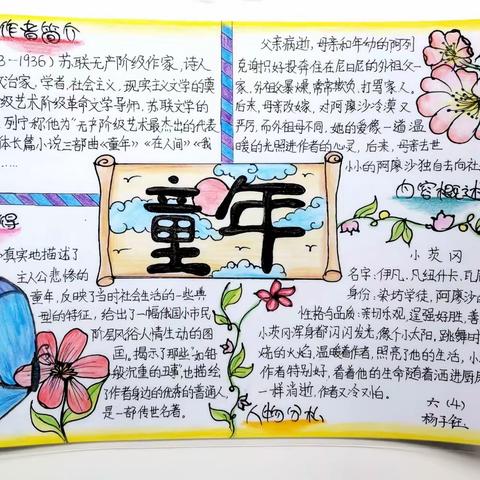 作者简介
3-1936)苏联无产阶级作家,诗人
治家,学者,社会主义,现实主义文学的奠
级艺术阶级革命文学导师,苏联文学的
列宁称他为"无产阶级艺术最杰出的代表
体长篇小说三部曲《童年》《在人间》《我
父亲病逝,母亲和年幼的阿列
克谢只好投奔住在尼日尼的外祖父一
家,外祖父暴燥,常常欺负,打骂家人。
后来,母亲改嫁,对阿廖沙冷漠又
严厉,而外祖母不同,她的爱像一道温
暖的光照进作者的心灵,后来,母亲去
小小的阿廖沙独自去向社
内容概述
童年
得
真实地描述了
主人公悲惨的
童年,反映了当时社会生活的一些典
型的特征,给出了一幅俄国小市民
阶层风俗人情生动的图
画。揭示了那些"如铅
般沉重的丑事",也描绘
了作者身边的优秀的普通人
是一部传世名著。
小茨冈
名字:伊凡,凡纽什卡,瓦尼
身份:染坊学徒,阿廖沙的
性格与品质:亲切乐观,逞强好胜,善
小茨冈浑身都闪闪发光,像个小太阳,跳舞时
烧的火焰,温暖着作者,照亮了他的生活,小
作者特别好,看着他的生命随着洒进厨房
一样消逝,作者又冷又怕。
人物分析
六(4)
杨子钰